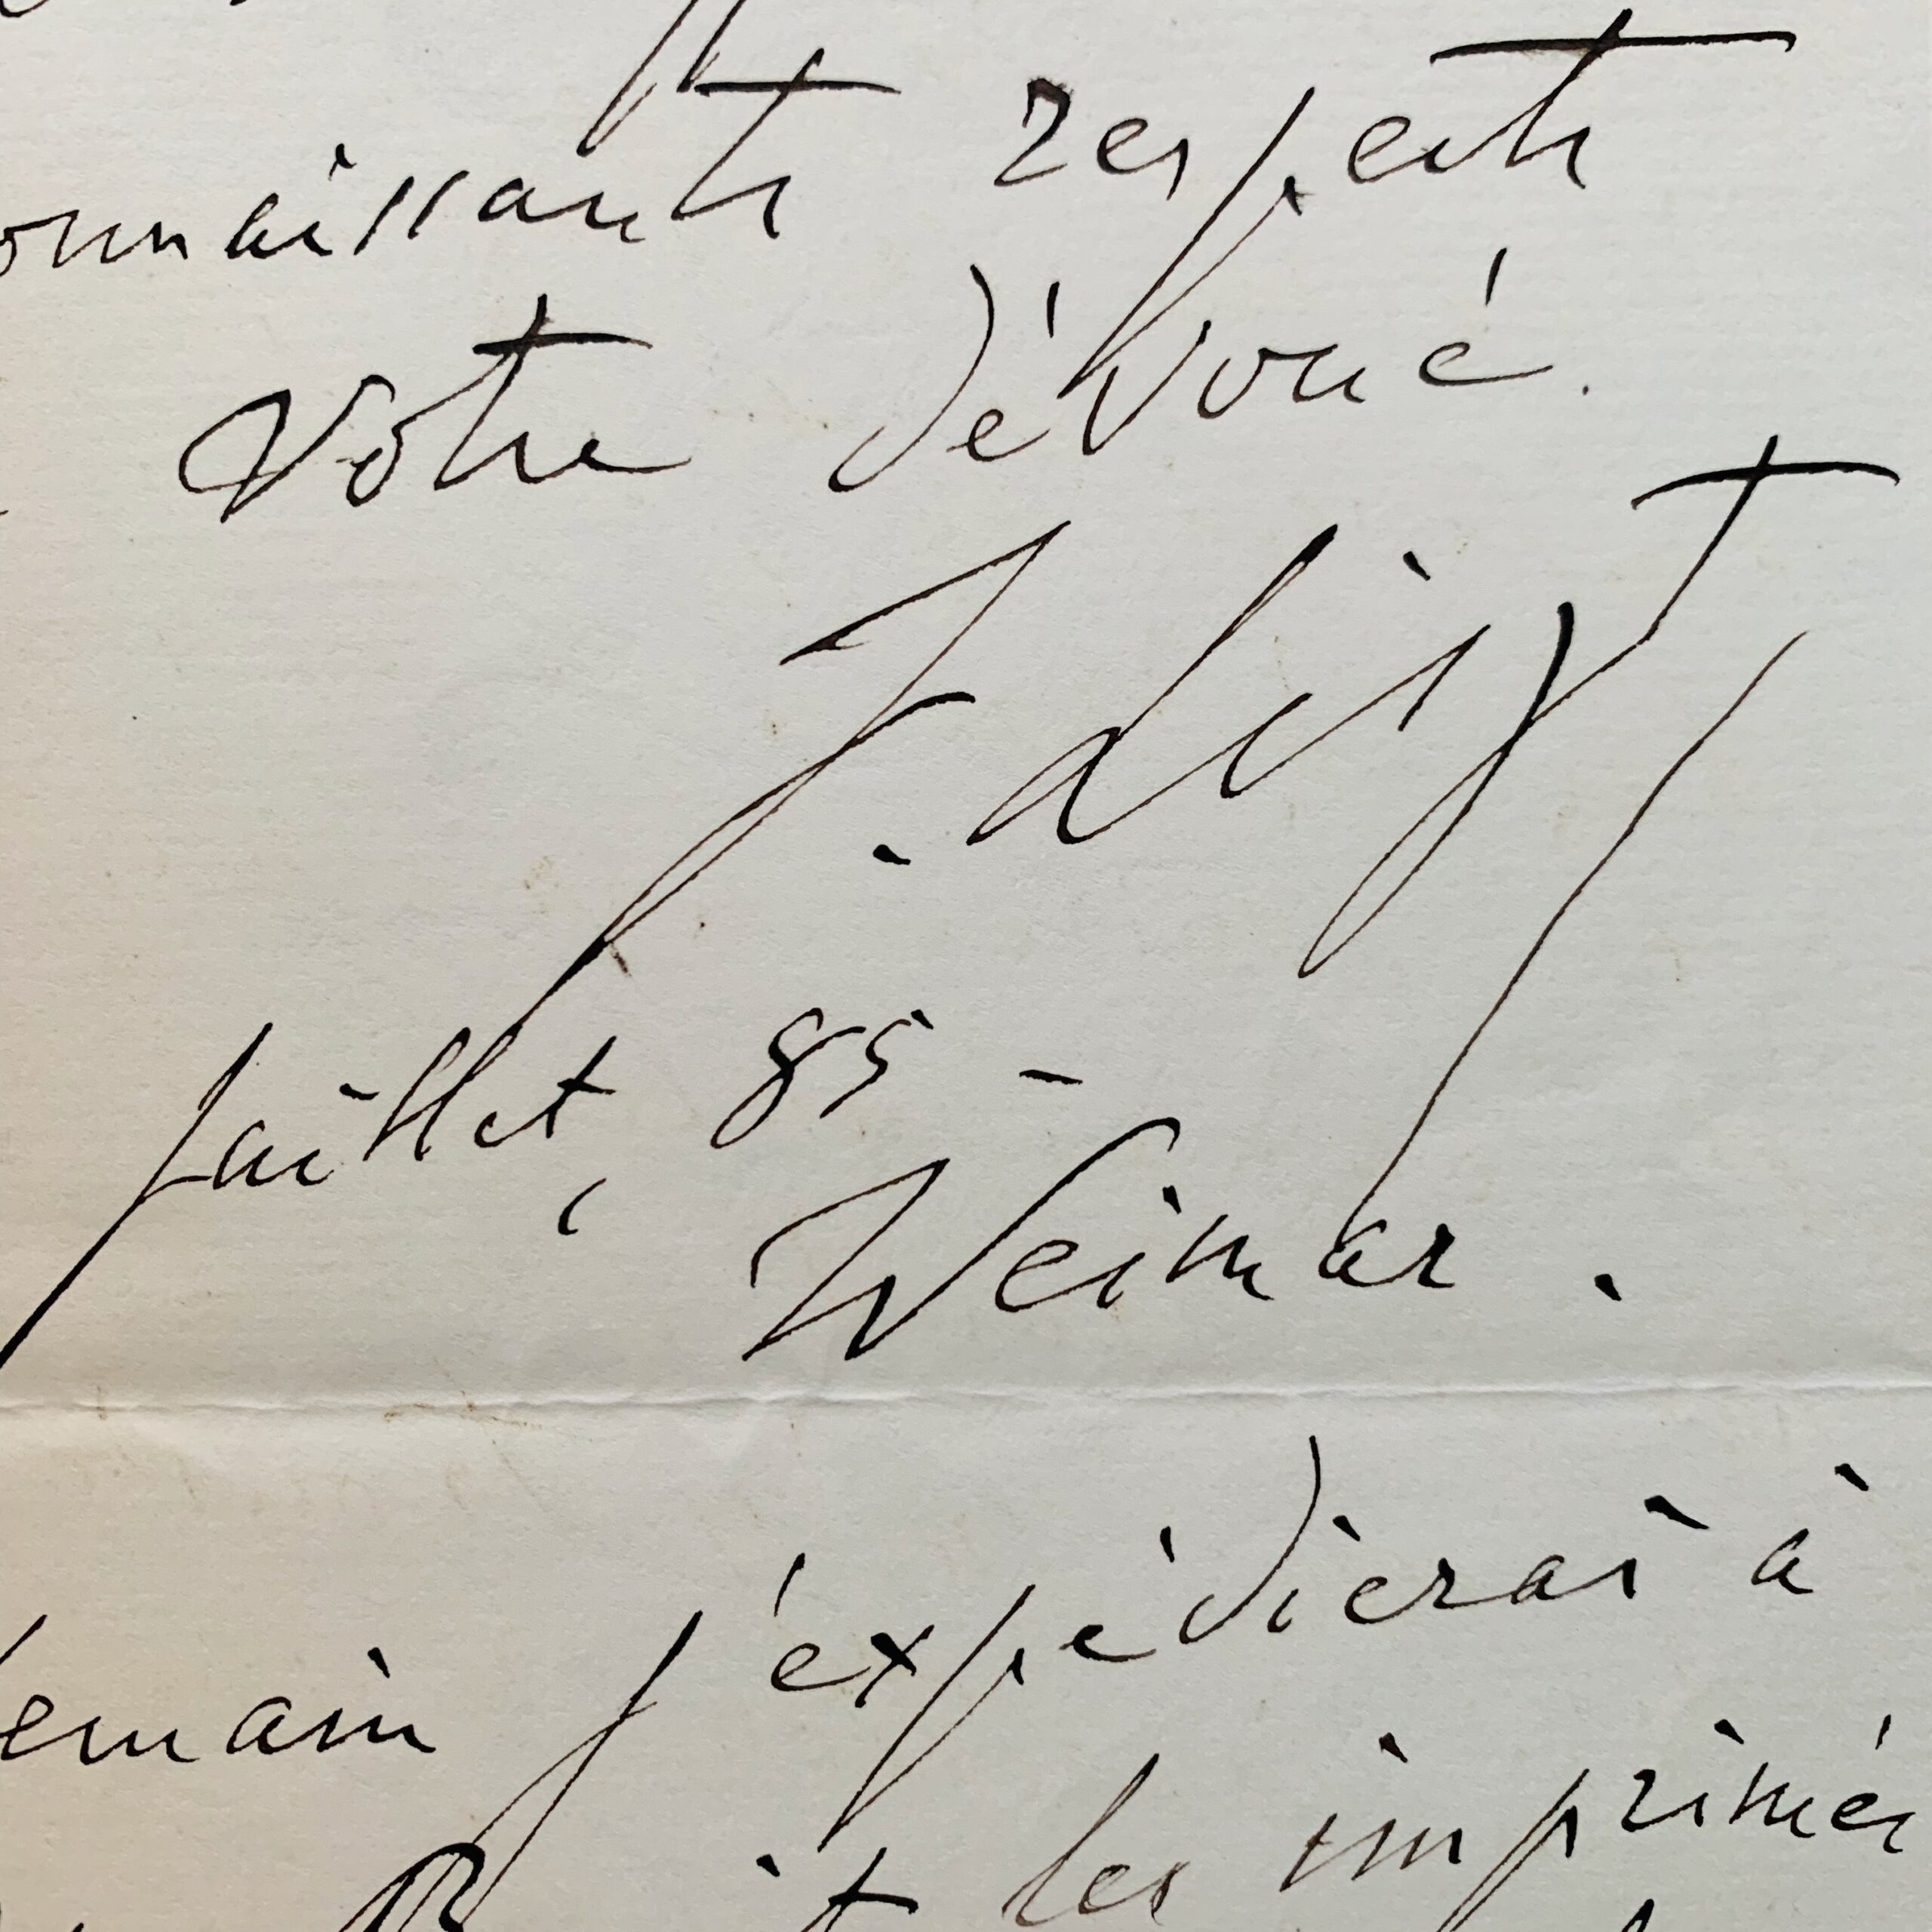 onnaissants respects
Votre dévoué.
F. Liszt
Juillet, 85 –
Weimar.
demain j'éxpédierai à
les imprimés